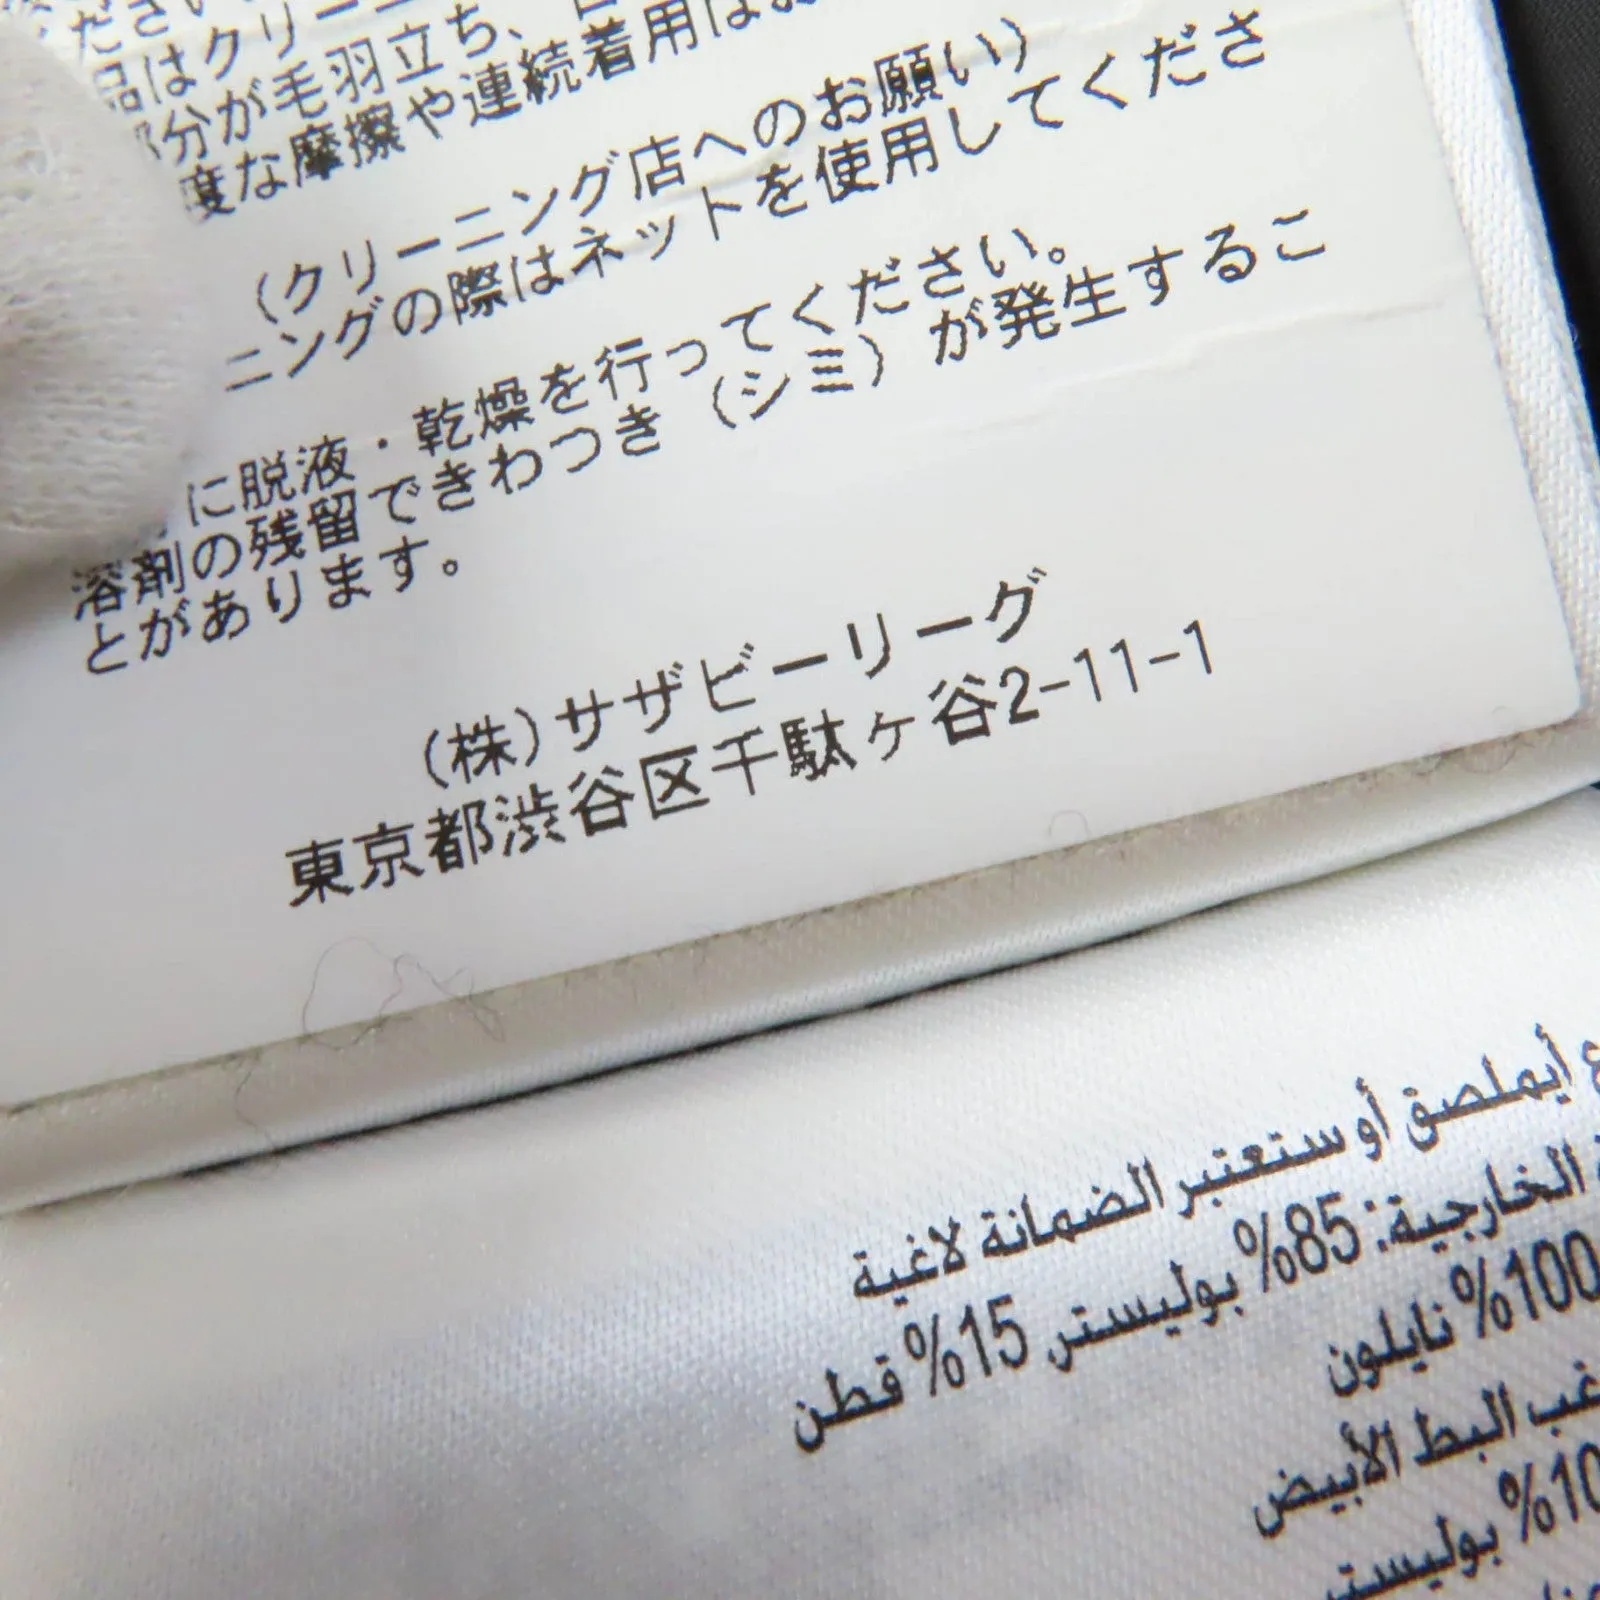 品はクリーニ
分が毛羽立ち、
度な摩擦や連続着用はお
(クリーニング店へのお願い)
ニングの際はネットを使用してくださ
に脱液・乾燥を行ってください。
溶剤の残留できわつき(シミ)が発生するこ
とがあります。
(株)サザビーリーグ
東京都渋谷区千駄ヶ谷2-11-1
أيملصق أو ستعتبر الضمانة لاغية
الخارجية: 85% بوليستر 15% قطن
100% نايلون
البط الأبيض
بوليستر